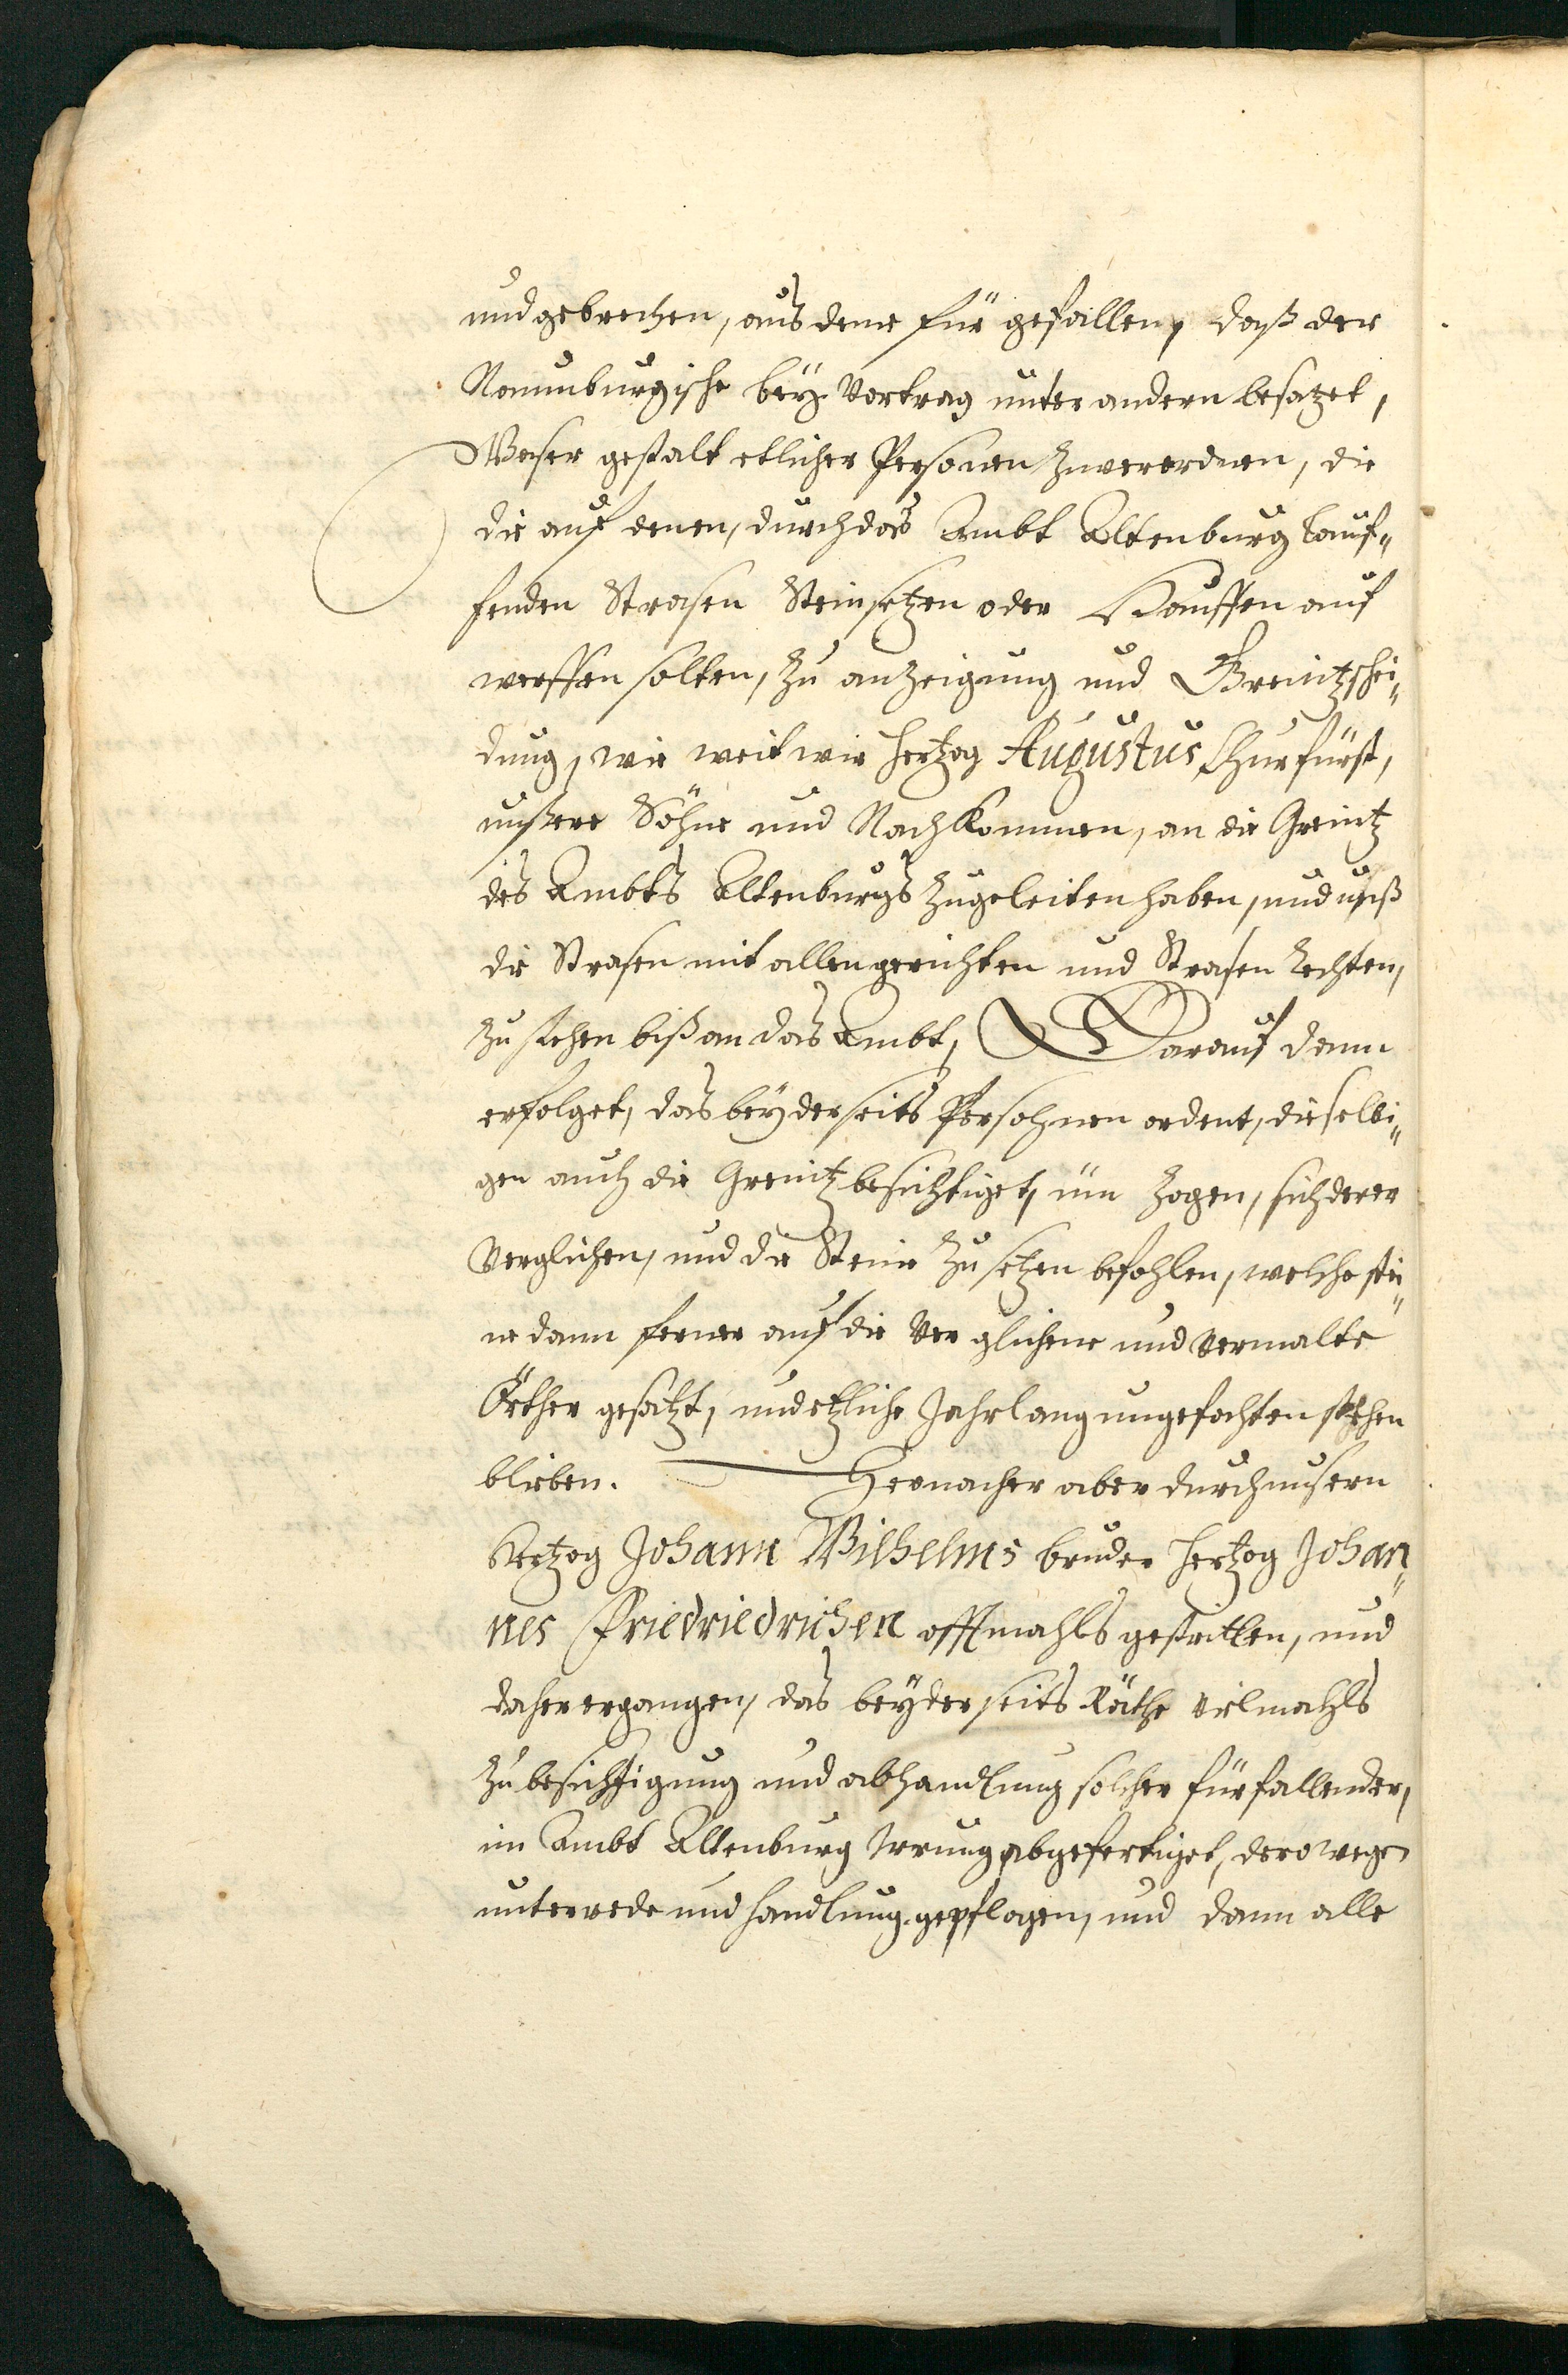 und gebrechen, aus deme für gefallen, daß der
Naumburgische bey Vortrag unter andern besatzet,
Waser gestalt etlicher Personen zuverordnen, die
die auf denen, durch das Ambt Altenburg lauf„
fenden Strasen Stein setzen oder Hauffen auf
werffen solten, zu anzeigung und Greintzschei„
dung, wie weit wir Hertzog Augustus Churfürst,
unßere Söhne und Nachkommen, an die Greintz
des Ambts Altenburgs zugeleiten haben, und unß
die Strasen mit allen gerichten und Strasen Rechten,
zu stehen biß an das Ambt, Darauf dann
erfolget, das beyderseits Persohnen ordent, dieselbi„
gen auch die Greintz besichtiget, üm zogen, sich derer
Verglichen, und die Steine zu setzen befohlen, welche stei„
ne dann ferner auf die Ver glichene und vermalte
Örther gesatzt, und etzliche Jahrlang ungefochten stehen
blieben. Hernacher aber durch unsern
Hertzog Johann Wilhelms bruder Hertzog Johan„
nes Friedriedrichen offtmahls gestritten, und
daher ergangen, das beyderseits Räthe vielmahls
zu besichtigung und abhandlung solcher fürfallender,
im Ambt Altenburg Irrung abgefertiget, derowegen
unterrede und handlung gepflogen, und dann alle